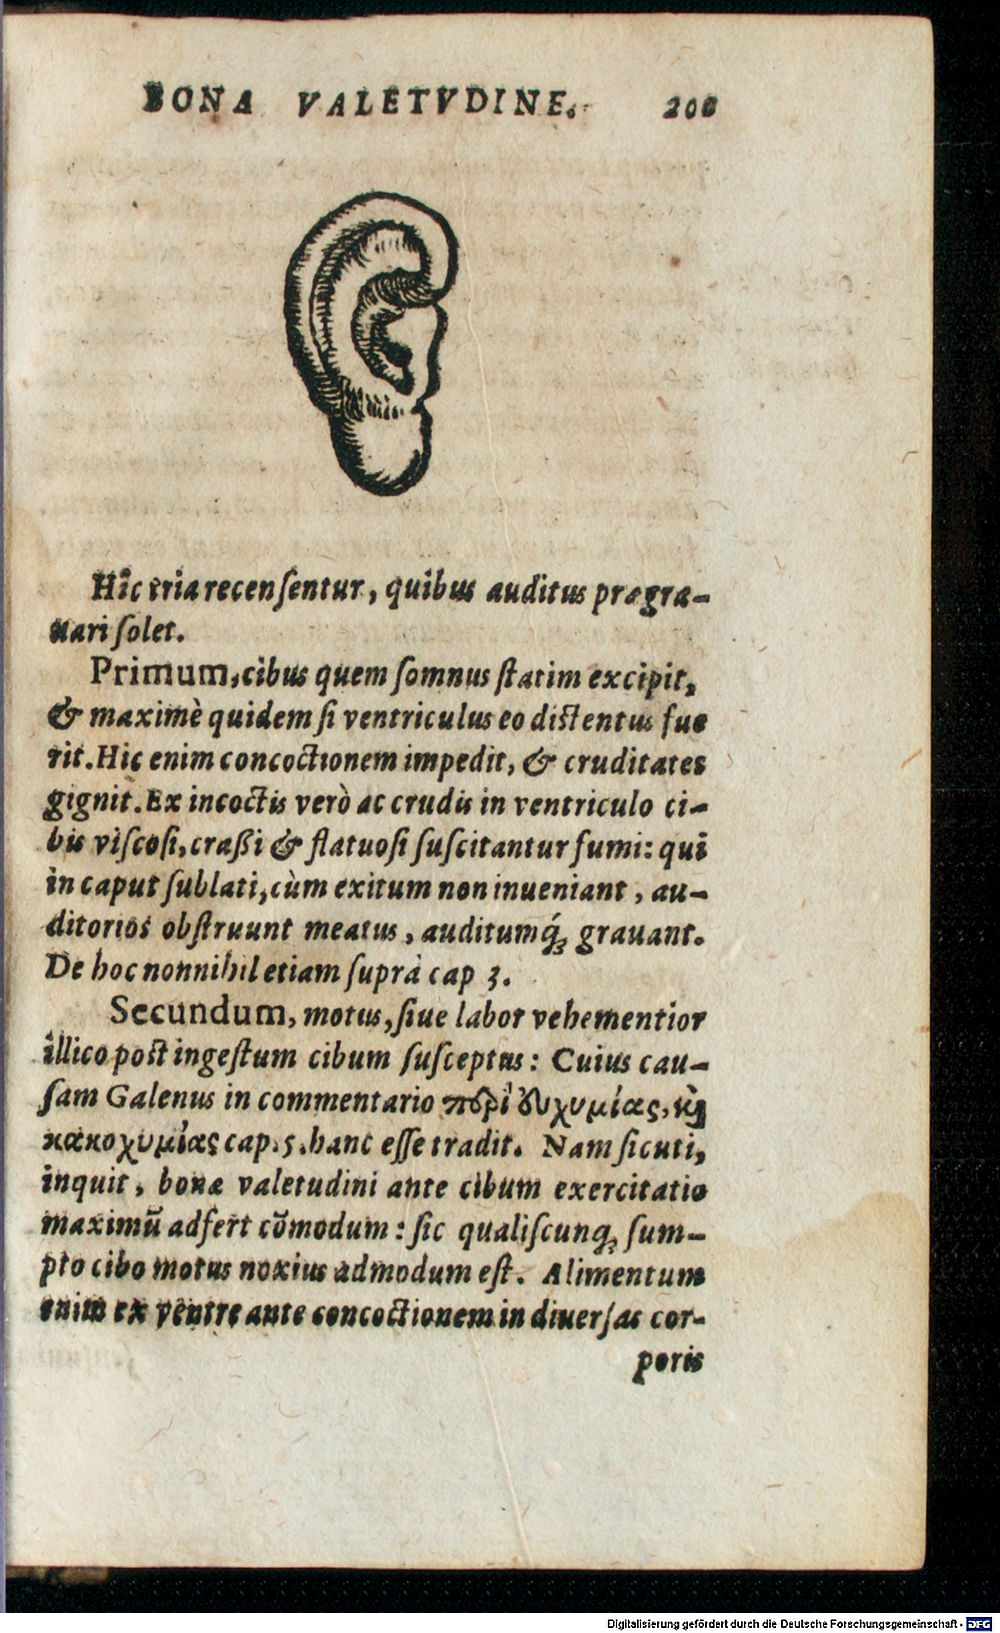 BONA VALETVDINE. 200
Hîc tria recenſentur, quibus auditus prægra-
uari ſolet.
Primum, cibus quem ſomnus ſtatim excipit,
& maximè quidem ſi ventriculus eo diſtentus fue
rit. Hic enim concoctionem impedit, & cruditates
gignit. Ex incoctis verò ac crudis in ventriculo ci-
bis viſcoſi, craßi & flatuoſi ſuſcitantur fumi: qui
in caput ſublati, cùm exitum non inueniant, au-
ditorios obſtruunt meatus, auditumq́; grauant.
De hoc nonnihil etiam ſuprà cap 3.
Secundum, motus, ſiue labor vehementior
illico poſt ingeſtum cibum ſuſceptus: Cuius cau-
ſam Galenus in commentario περὶ εὐχυμίας, καὶ
κακοχυμίας cap. 5. hanc eſſe tradit. Nam ſicuti,
inquit, bonæ valetudini ante cibum exercitatio
maximū adfert cōmodum: ſic qualiſcunq; ſum-
pto cibo motus noxius admodum eſt. Alimentum
enim ex ventre ante concoctionem in diuerſas cor-
poris
Digitalisierung gefördert durch die Deutsche Forschungsgemeinschaft - DFG